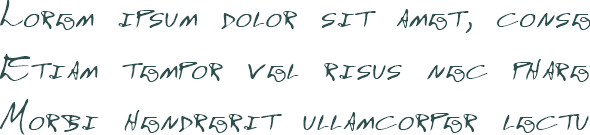 Lorem ipsum dolor sit amet, conse
Etiam tempor vel risus nec phare
Morbi hendrerit ullamcorper lectu